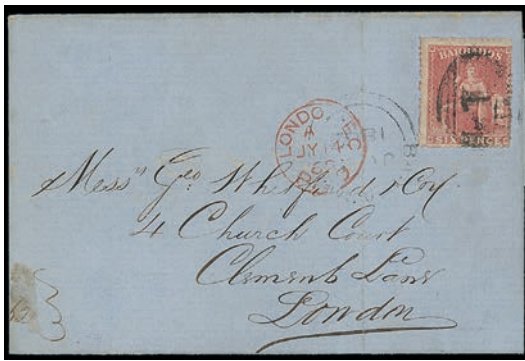 BARBADOS
1
SIXPENCE
LONDON, E.C
A
JY 14
PAID
Mess" Geo Whitfield & Coy
4 Church Court
Clement Lane
London